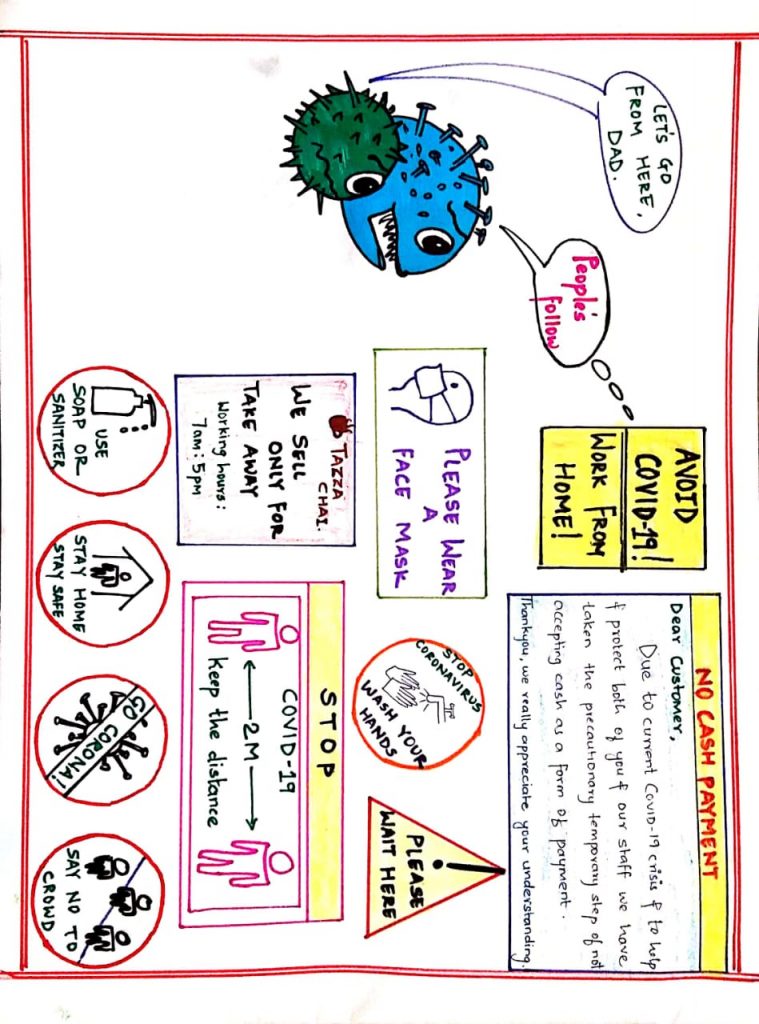 LET'S GO
FROM HERE,
DAD.
People's
follow
AVOID
COVID-19!
WORK FROM
HOME!
NO CASH PAYMENT
Dear Customer,
Due to current Covid-19 crisis & to help
& protect both of you & our staff we have
taken the precautionary temporary step of not
accepting cash as a form of payment.
Thankyou, we really appreciate your understanding.
PLEASE WEAR
A
FACE MASK
STOP
CORONAVIRUS
WASH YOUR
HANDS
PLEASE
WAIT HERE
TAZZA
CHAI.
WE SELL
ONLY FOR
TAKE AWAY
Working hours:
7am: 5pm
STOP
COVID-19
2M
keep the distance
USE
SOAP OR
SANITIZER
STAY HOME
STAY SAFE
GO CORONA!
SAY NO TO
CROWD